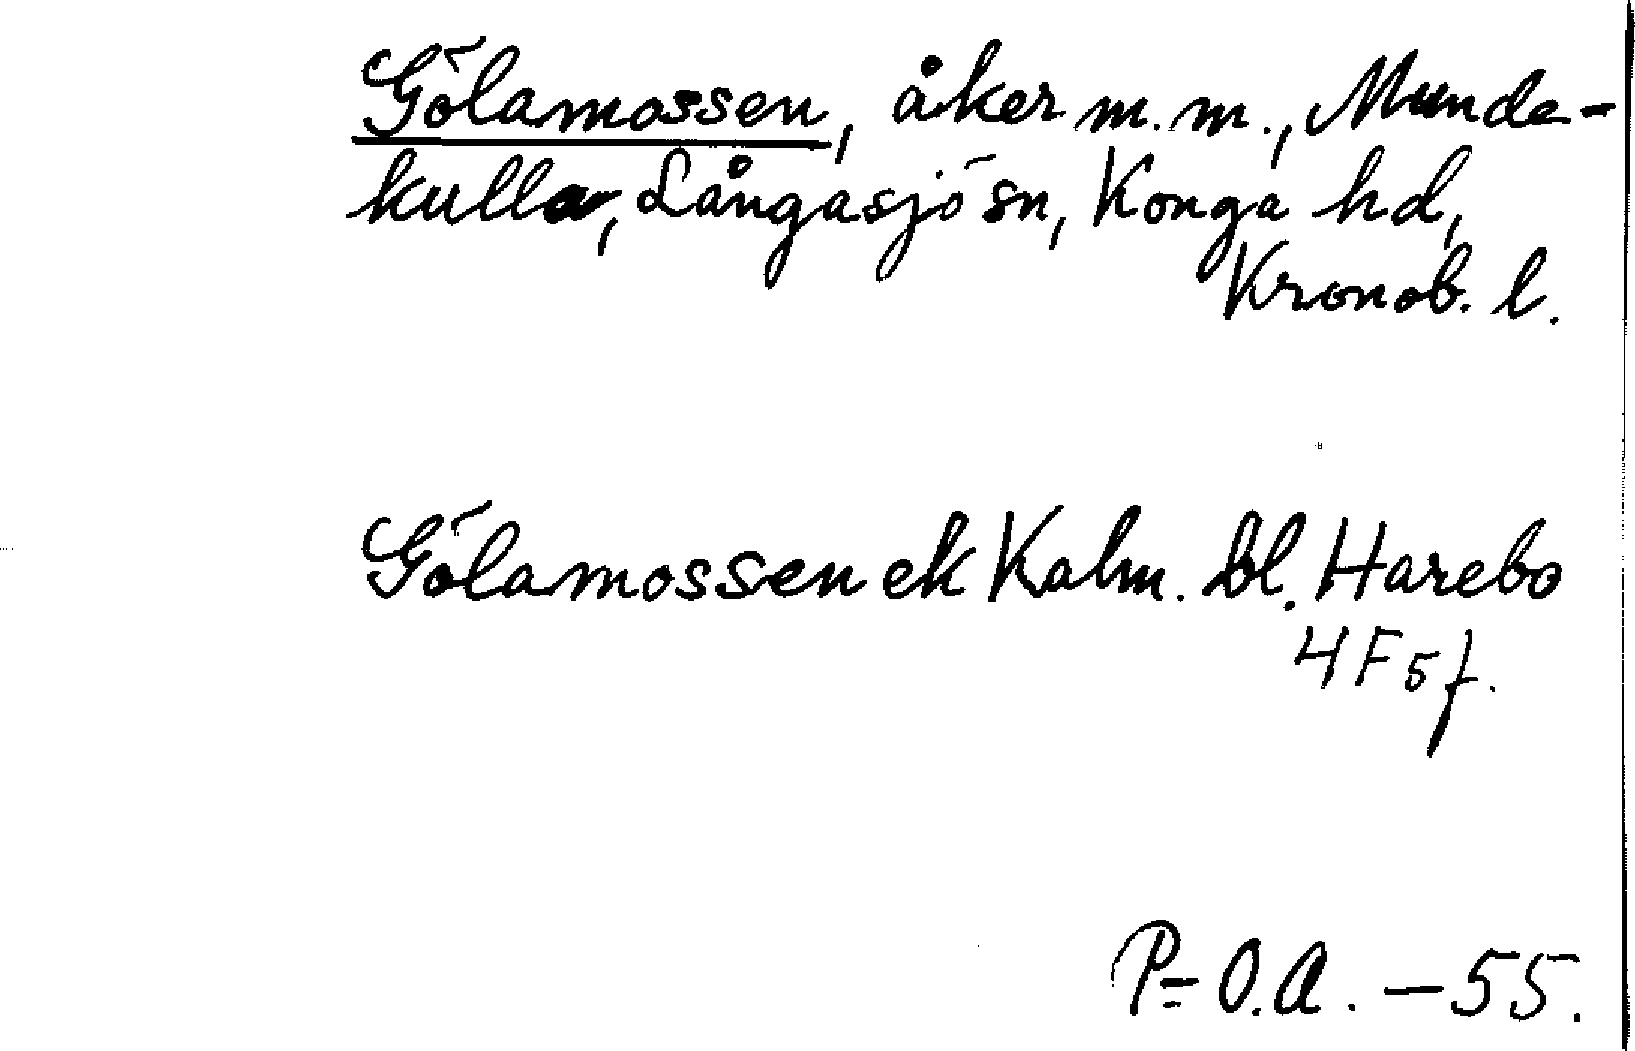 Gölamossen, åker m.m., Munde-
kulla, Långasjö sn, Konga hd,
Kronob. l.
Gölamossen ek Kalm. bl. Harebo
4F5f.
P=O.A. -55.